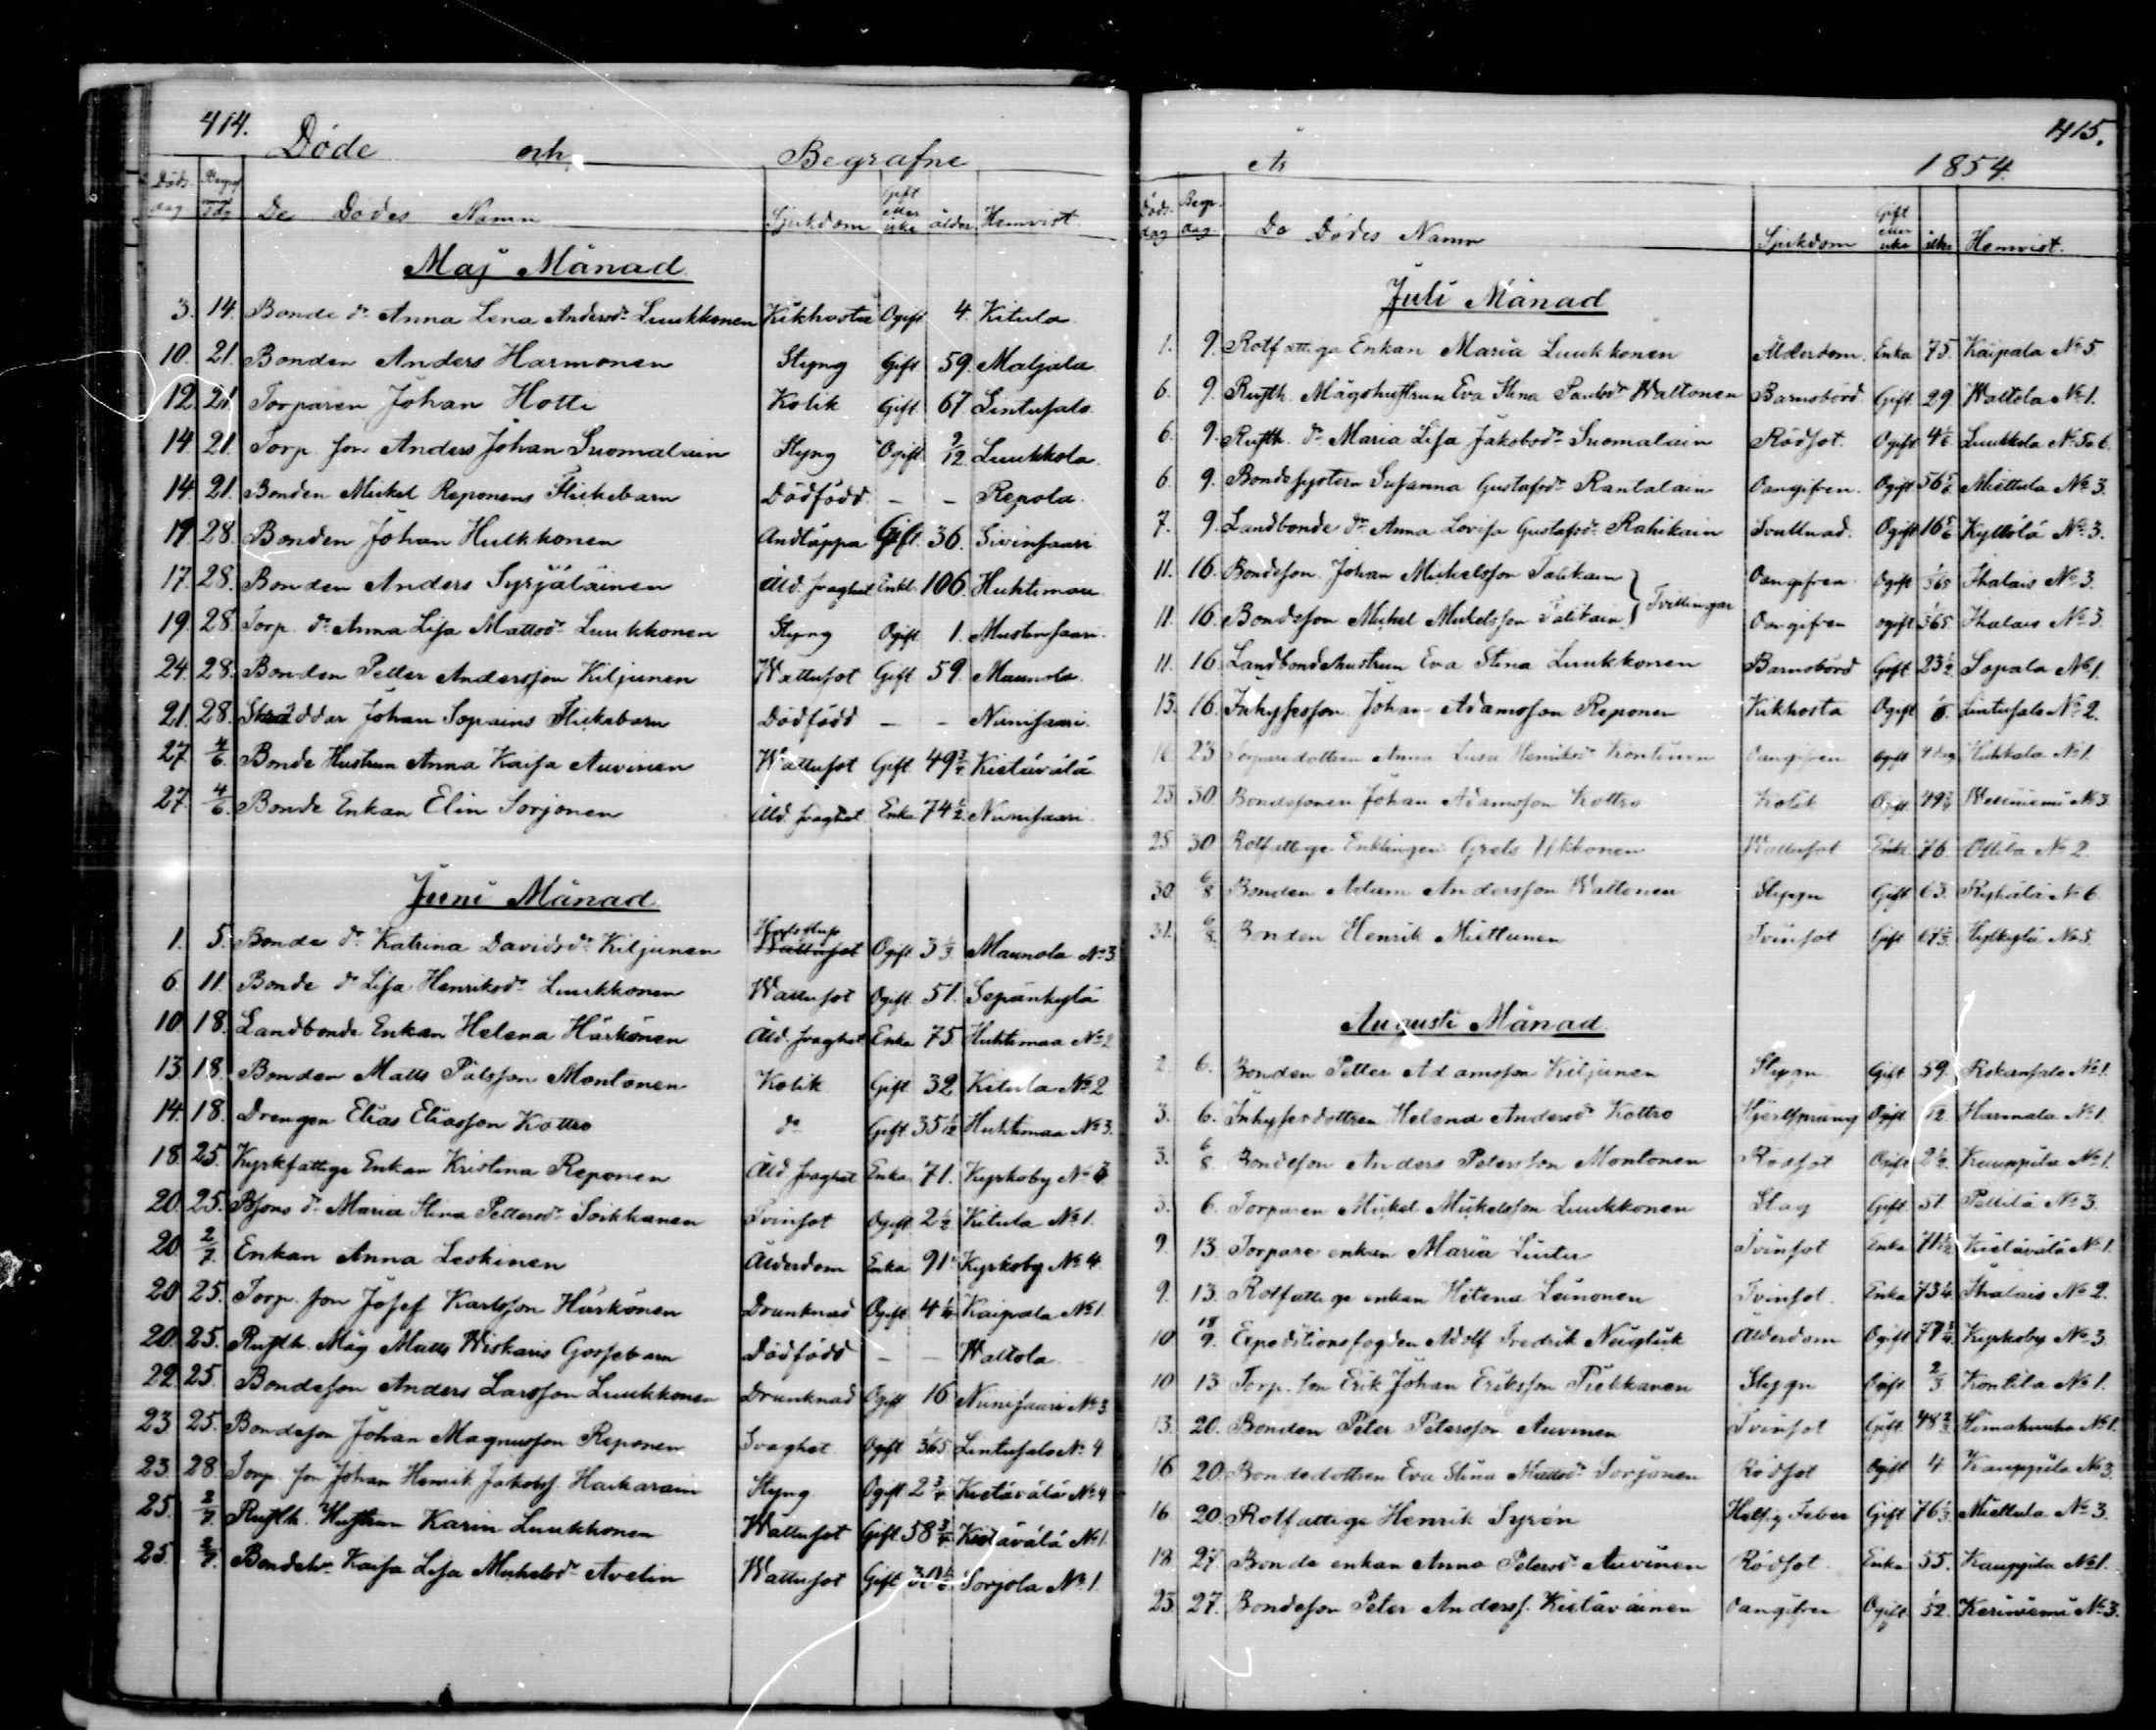 414.
Döde och Begrafne
Döds dag Begrafn. dag De Dödes Namn Sjukdom Gift eller icke ålder Hemvist.
Maj Månad
3. 14. Bonde dr Anna Lena Andersdr Luukkonen Kikhosta Ogift 4. Kitula
10. 21. Bonden Anders Harmonen Styng Gift 59. Maljala
12. 21. Torparen Johan Hotti Kolik Gift 67 Lintusalo
14. 21. Torp. son Anders Johan Suomalain Styng Ogift 2/12 Luukkola.
14. 21. Bonden Mickel Reponens Flickebarn Dödfödd – – Repola.
19. 28. Bonden Johan Hulkkonen Andtäppa Gift 36. Sivinsaari
17. 28. Bonden Anders Syrjäläinen Åld. svaghet Enkl. 106. Huhtimaa
19. 28. Torp. dr Anna Lisa Mattsdr Luukkonen Styng Ogift 1. Mustinsaari.
24. 28. Bonden Petter Andersson Kiljunen Wattusot Gift 59. Maunola
21. 28. Skräddar Johan Sopains Flickebarn Dödfödd – – Niinisaari.
27. 4/6. Bonde Hustrun Anna Kaisa Auvinen Wattusot Gift 49 Kietävälä
27. 4/6. Bonde Enkan Elin Sorjonen Åld. svaghet Enka 74 1/2. Niinisaari.
Juni Månad
Halsflup
1. 5. Bonde dr Katrina Davidsdr Kiljunen Wattusot Ogift 3 1/3. Maunola No 3
6. 11. Bonde dr Lisa Henriksdr Luukkonen Wattusot Ogift. 51. Sepänkylä
10. 18. Landbonde Enkan Helena Härkönen Åld. svaghet Enka 75. Huhtimaa No 2
13. 18. Bonden Matts Pålsson Montonen Kolik Gift 32. Kitula No 2
14. 18. Drengen Elias Eliasson Kottro do Gift 35 1/12 Huhtimaa No 3.
18. 25. Kyrkfattige Enkan Kristina Reponen Åld svaghet Enka 71. Kyrkoby No
20. 25. Bsons dr Maria Stina Pettersdr Soikkanen Tvinsot Ogift 2 1/2 Kitula No 1.
20. 2/7. Enkan Anna Leskinen Ålderdom Enka 91. Kyrkoby No 4
20. 25. Torp. son Josef Karlsson Härkönen Drunknad Ogift 4 Kaipala No 1.
20. 25. Rusth. Måg Matts Wiskaris Gossebarn Dödfödd – – Waltola
22. 25. Bondeson Anders Larsson Luukkonen Drunknad Ogift 16 Niinisaari No 3
23. 25. Bondeson Johan Magnusson Reponen Svaghet Ogift 1/365 Lintusalo No 4
23. 28. Torp. son Johan Henrik Jakobss. Haikarain Styng Ogift 2 3/4 Kietävälä No 4
25. 2/7. Rusth. Hustrun Karin Luukkonen Wattusot Gift 58 3/4 Kietävälä No 1.
25. 2/7. Bondehu Kaisa Lisa Mickelsdr Avelin Wattusot Gift 30 Sorjola No 1.
415.
År 1854.
Döds dag Begr. dag De Dödes Namn Sjukdom Gift eller icke ålder Hemvist.
Juli Månad
1. 9. Rotfattige Enkan Maria Luukkonen Ålderdom. Enka 75. Kaipala No 5.
6. 9. Rusth. Mågshustrun Eva Stina Paulsdr Waltonen Barnsbörd Gift 29. Waltola No 1.
6. 9. Rusth. dr Maria Lisa Jakobsdr Suomalain Rödsot. Ogift 4 1/6 Luukkola No 5o6.
6. 9. Bondesystern Susanna Gustafsdr Rantalain Oangifven. Ogift 56 Miettula No 3.
7. 9. Landbonde dr Anna Lovisa Gustafsdr Rahikain Svullnad. Ogift 16 5/6 Kyllölä No 3.
11. 16. Bondeson Johan Mickelsson Talikain Oangifven Ogift 1/365 Ihalais No 3.
Tvillingar
11. 16. Bondeson Mickel Mickelsson Talikain Oangifven ogift 1/365 Ihalais No 3.
11. 16. Landbondehustrun Eva Stina Luukkonen Barnsbörd Gift 23 1/2 Sopala No 1.
13. 16. Inhysesson Johan Adamsson Reponen Kikhosta Ogift Lintusalo No 2.
16. 23. Torparedottren Anna Lusa Henriksdr Kontinen Oangifven ogift 4 dag Hukkala No 1.
23. 30. Bondesonen Johan Adamsson Kottro Kolik Ogift 49 Wesiniemi No 3.
25. 30. Rotfattige Enklingen Grels Ukkonen Wattusot Enkl. 76. Ollila No 2.
30. 6/8. Bonden Adam Andersson Waltonen Styggn Gift 63. Ryhälä No 6.
31. 6/8. Bonden Henrik Miettunen Tvinsot Gift 67 Hylkylä No 5.
Augusti Månad.
2. 6. Bonden Petter Adamsson Kiljunen Styggn Gift 59. Rokansalo No 1.
3. 6. Inhysesdottren Helena Andersdr Kottro Hjertsprång Ogift 1/12 Harmala No 1.
3. 6/8 Bondeson Anders Petersson Montonen Rödsot Ogift 2 1/2. Kauppila No 1.
3. 6. Torparen Mickel Mickelsson Luukkonen Slag Gift 51. Pellilä No 3.
9. 13. Torpare enkan Maria Linter Tvinsot Enka 71 Kietävälä No 1.
9. 13. Rotfattige enkan Helena Leinonen Tvinsot. Enka 73 1/4. Ihalais No 2.
10. 18/9. Expeditionsfogden Adolf Fredrik Neiglick Ålderdom Ogift 77 3/4. Kyrkoby No 3.
10 13. Torp. son Erik Johan Eriksson Pielkanen Styggn Ogift 2/3 Kontila No 1.
13. 20. Bonden Peter Petersson Auvinen Tvinsot Gift 48 No 1.
16 20. Bondedottren Eva Stina Mattsdr Sorjonen Rödsot Ogift 4 Kauppila No 3.
16. 20. Rotfattige Henrik Syrén Hetsig Feber Gift 76 1/3 Miettula No 3.
18. 27. Bonde enkan Anna Petersdr Auvinen Rödsot. Enka 55. Kauppila No 1.
23. 27. Bondeson Peter Anderss. Kietäväinen Oangifven Ogift 1/52. Keriniemi No 3.